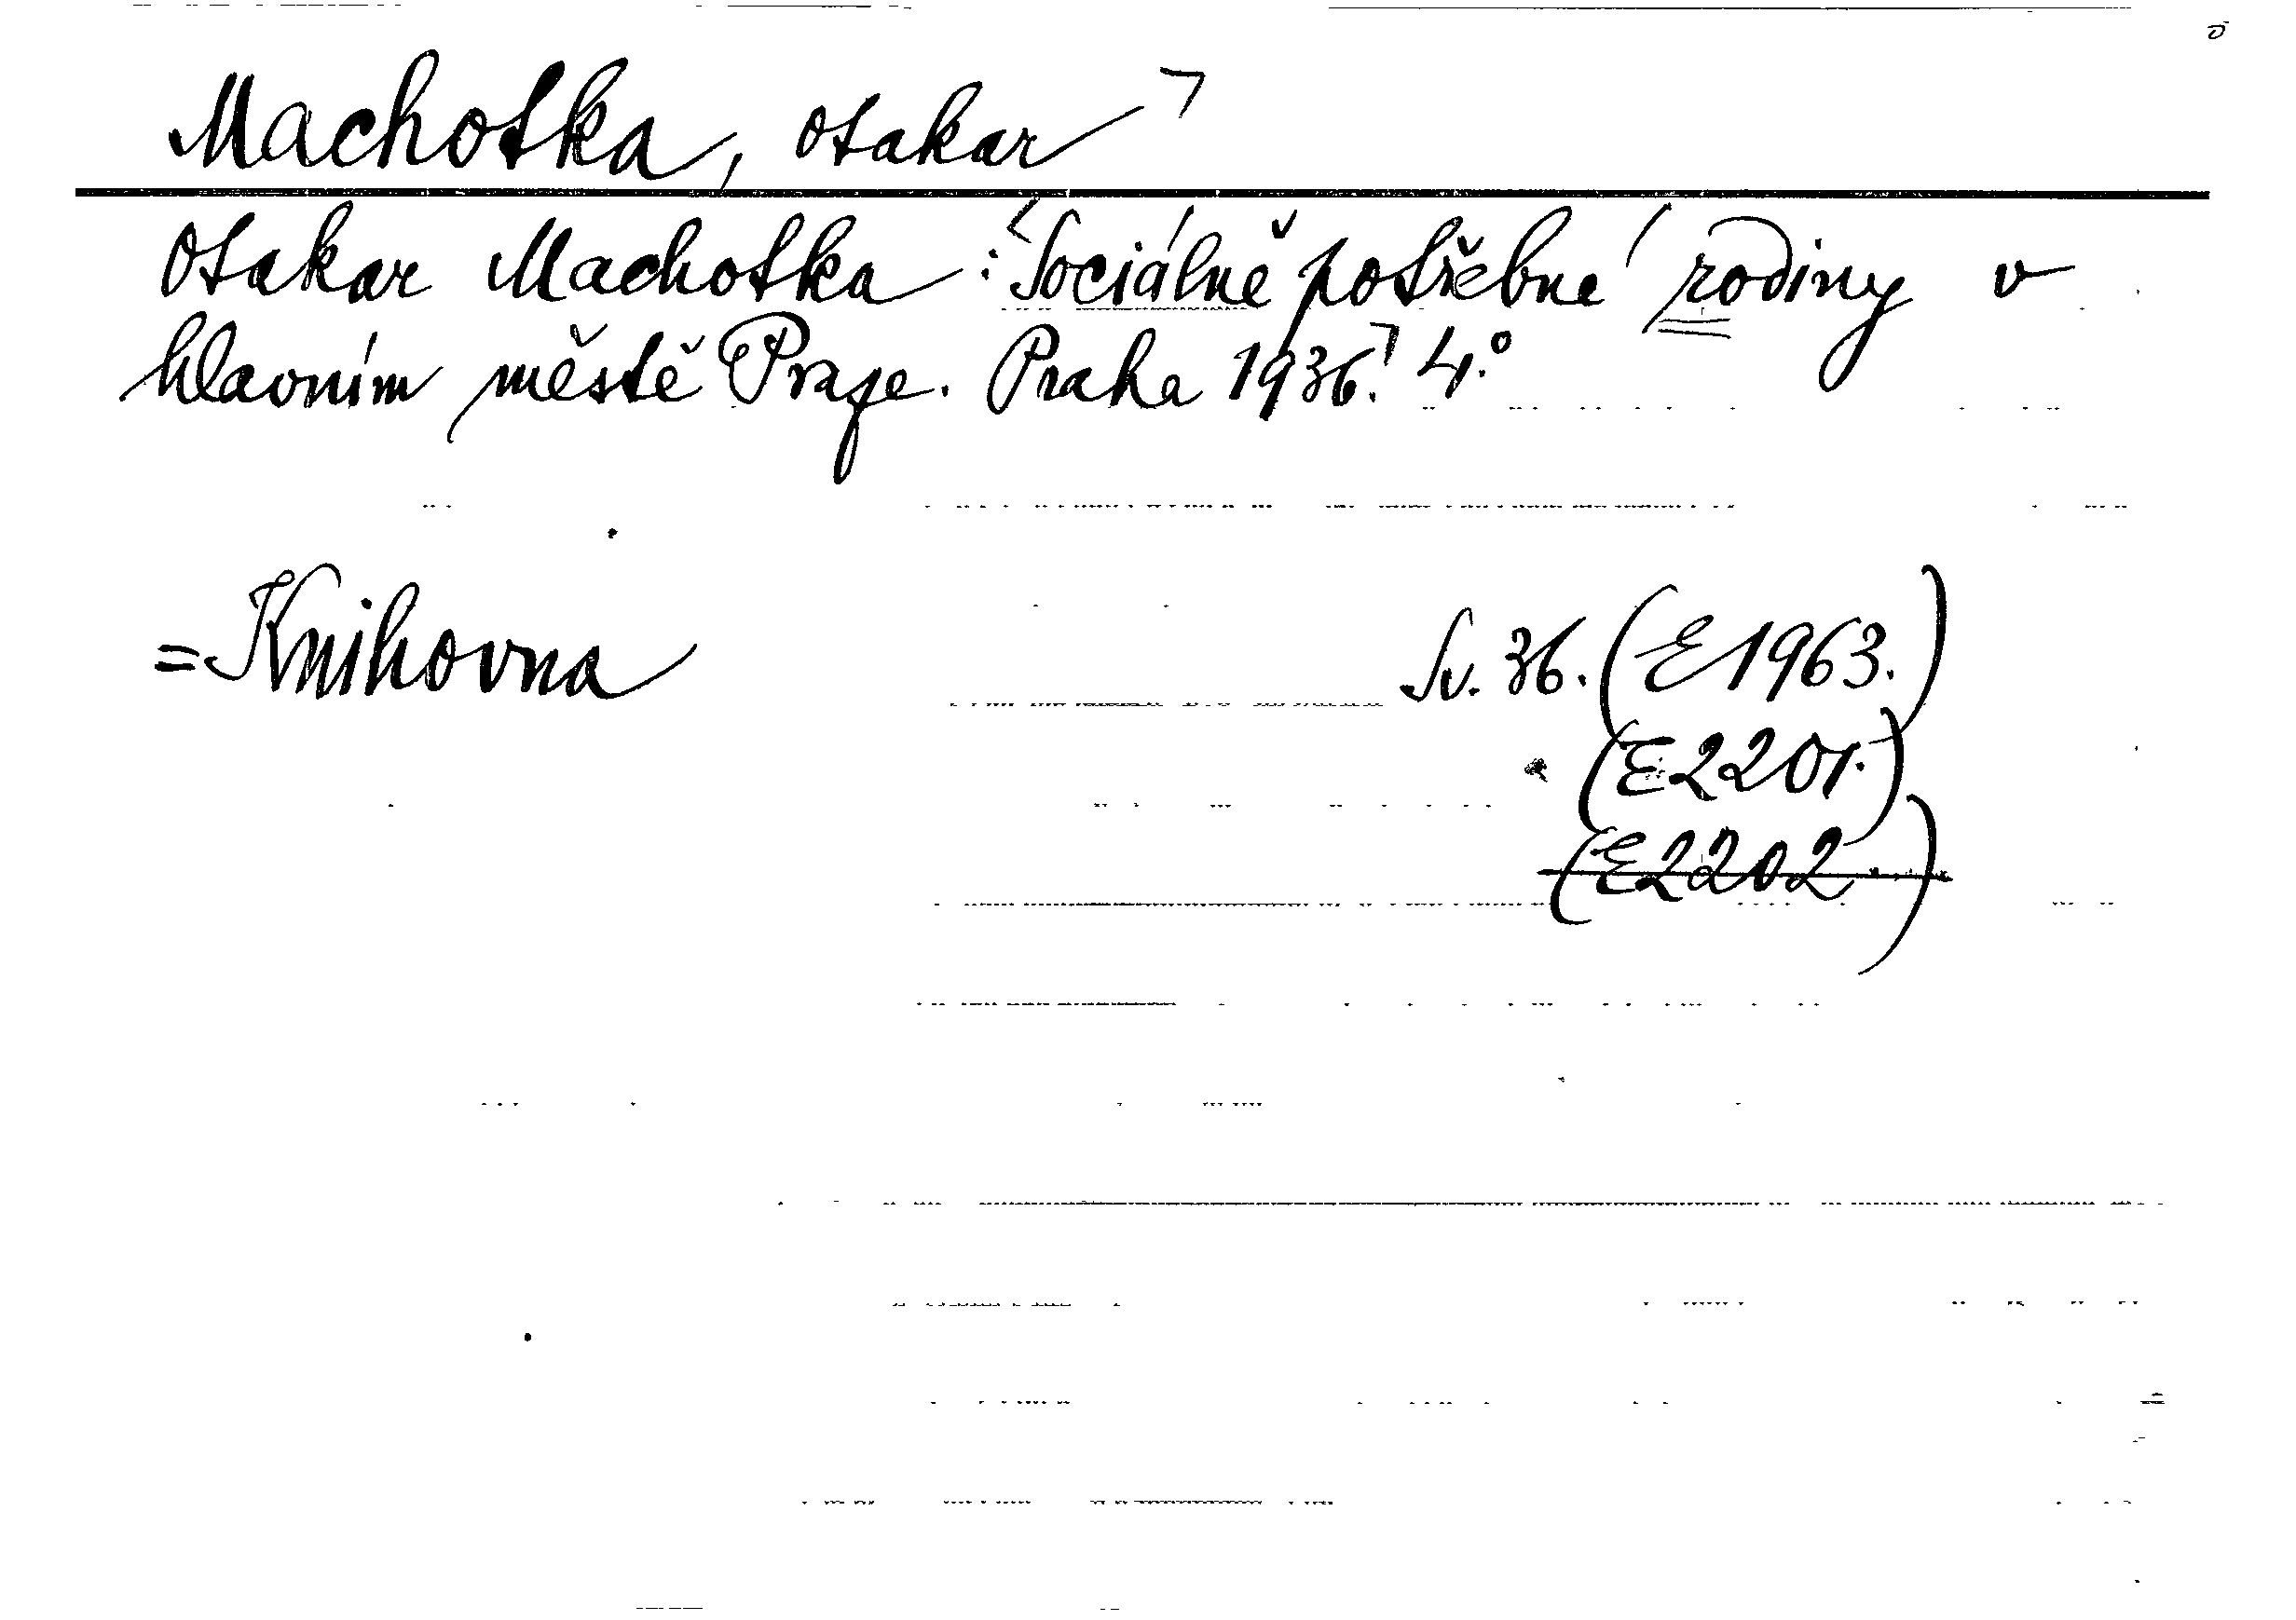 Machotka, Otakar
Otakar Machotka: Sociálně potřebné rodiny v
hlavním městě Praze. Praha 1936. 4.°
= Knihovna Sv. 36. (E1963.)
(E2201.)
(E2202.)